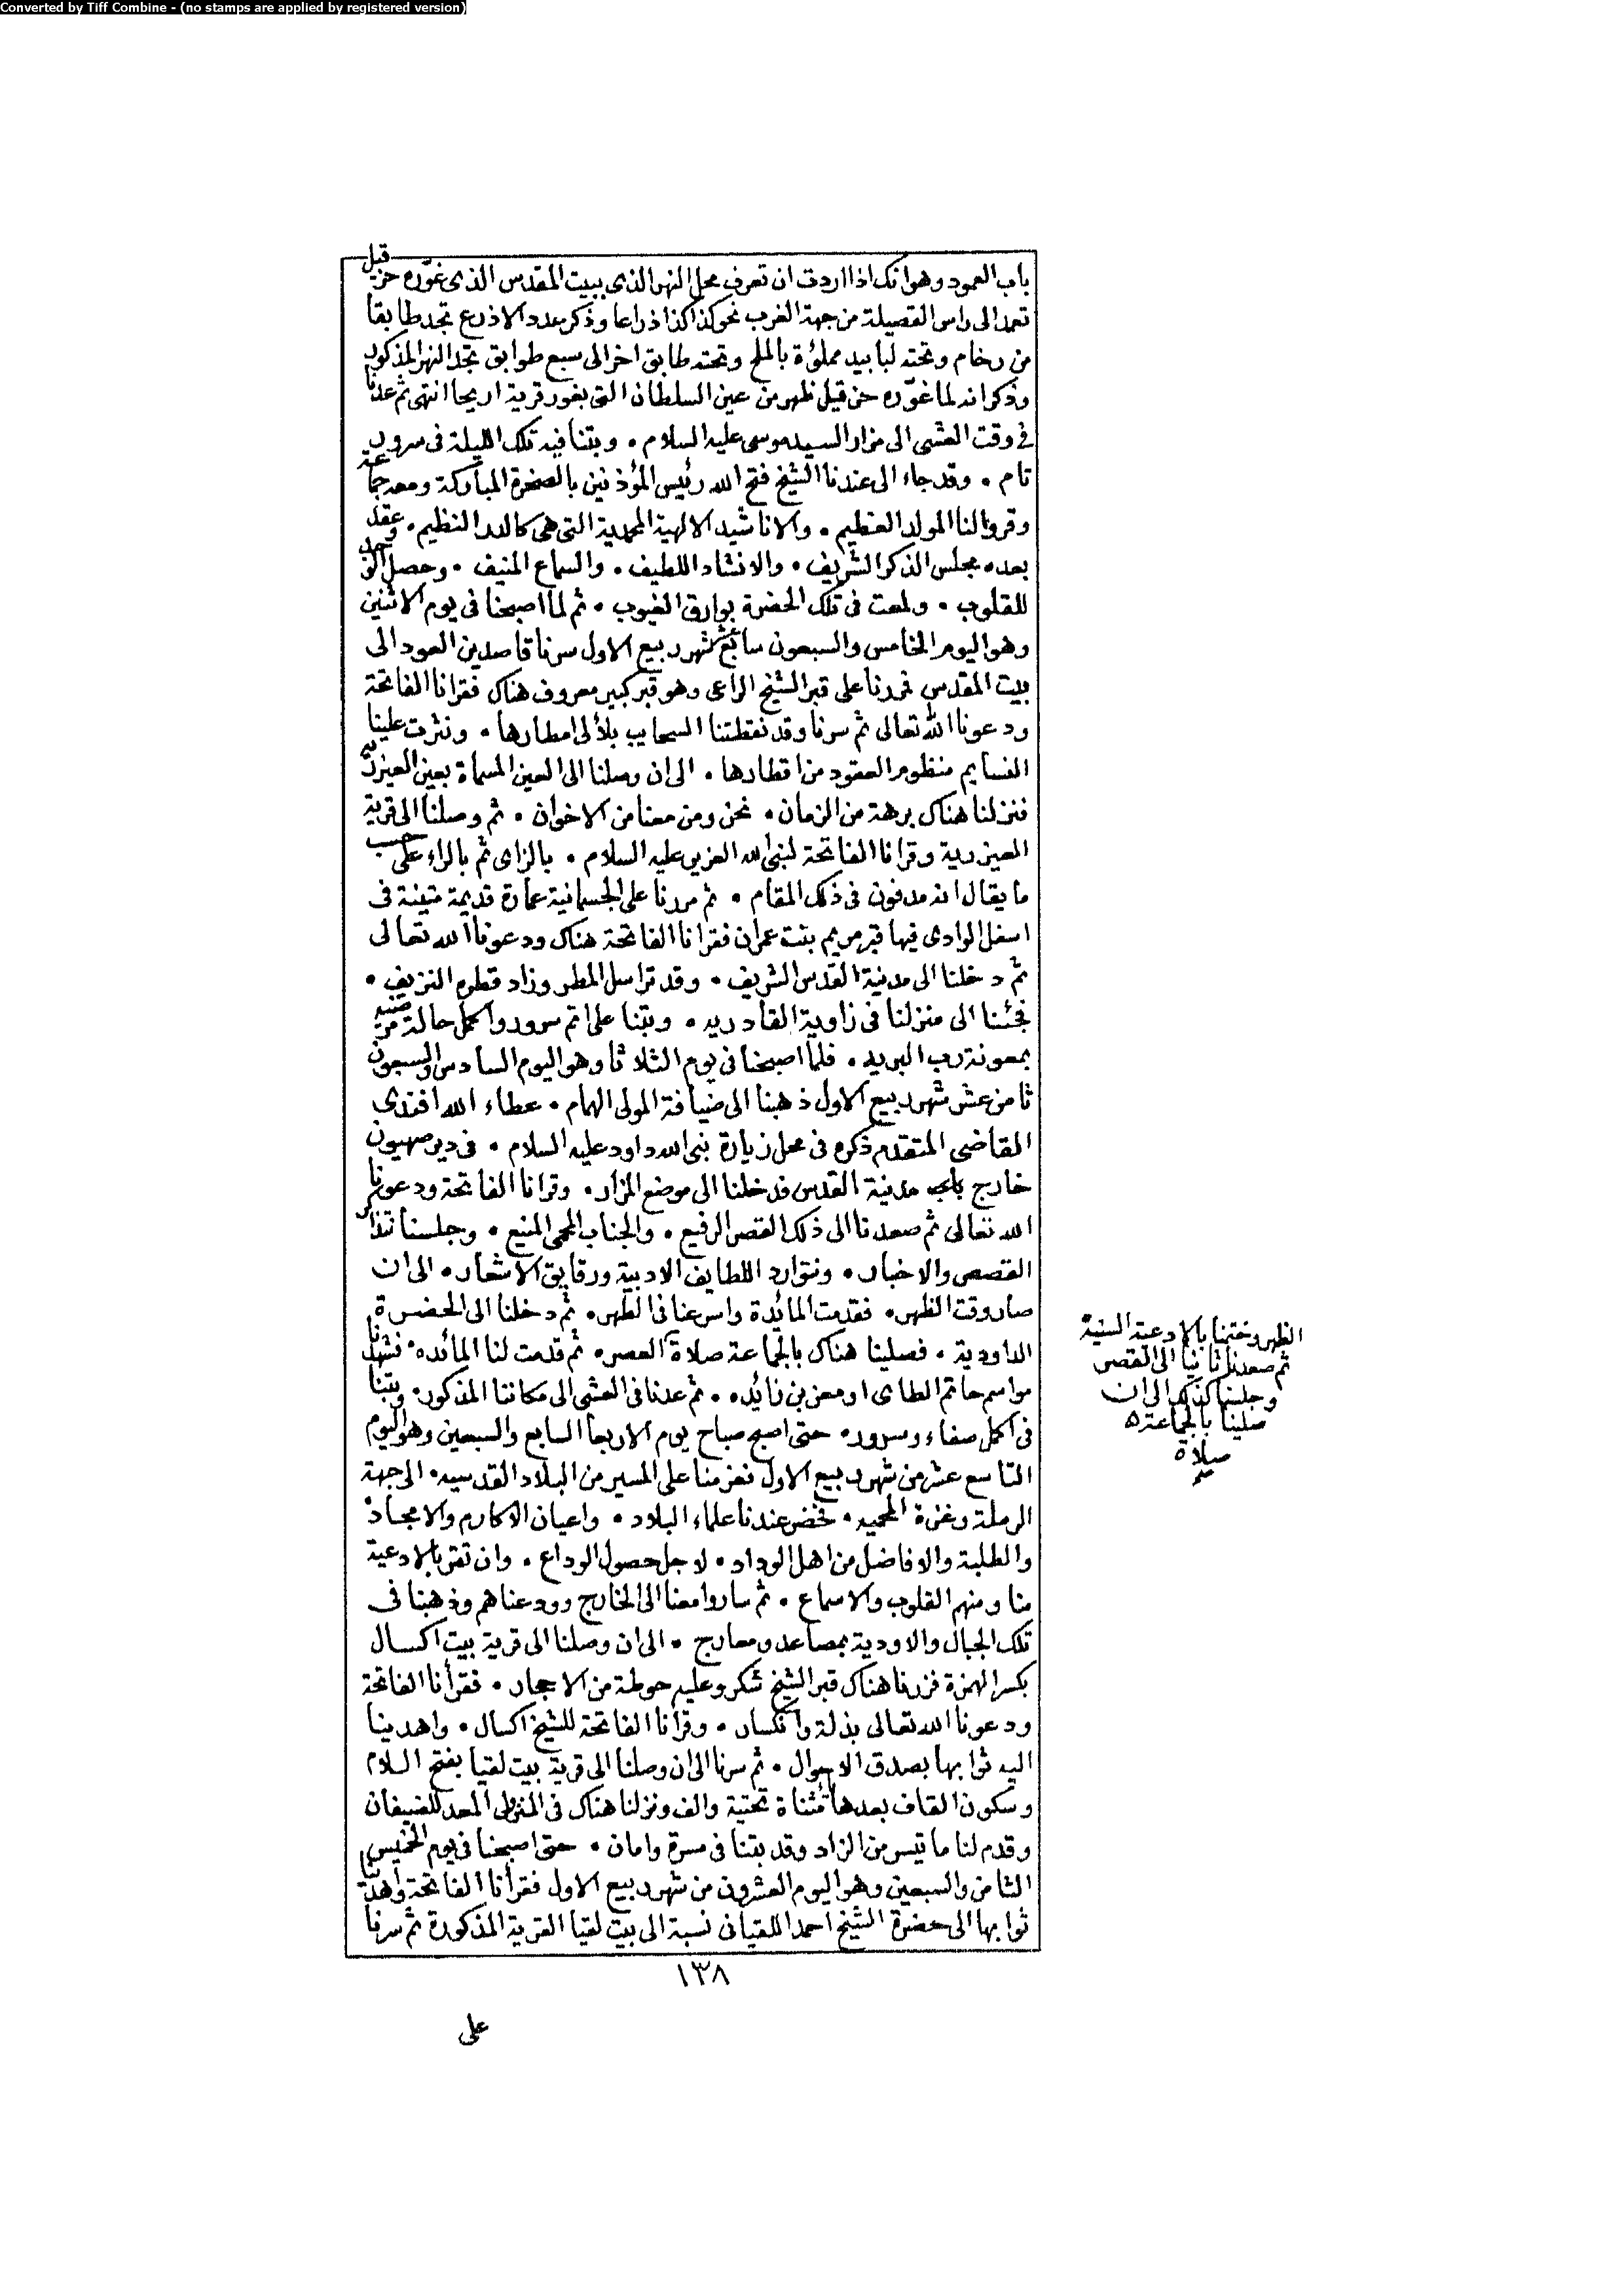 Converted by Tiff Combine - (no stamps are applied by registered version)
باب العمود وهو انك اذا اردت ان تعرف محل النهر الذى ببيت المقدس الذى غوّره حزقيل
تعمد الى راس الفصيلة من جهة الغرب نحو كذا كذا ذراعا وذكر عدد الاذرع تجد طابقا
من رخام وتحته لبابيد مملؤة بالملح وتحته طابق اخر الى سبع طوابق تجد النهر المذكور
وذكر انه لما غوّره حزقيل ظهر من عين السلطان التى بغور قرية اريحا انتهى ثم عدنا
فى وقت العشى الى مزار السيد موسى عليه السلام . وبتنا فيه تلك الليلة فى سرور
تام . وقد جاء الى عندنا الشيخ فتح الله رئيس المؤذنين بالصخرة المباركة ومعه جماعة
وقروا لنا المولد العظيم . والاناشيد الالهية المحمدية التى هى كالدر النظيم . وعقد
بعده مجلس الذكر الشريف . والانشاد اللطيف . والسماع المنيف . وحصل الوجد
للقلوب . ولمعت فى تلك الحضرة بوارق الغيوب . ثم لما اصبحنا فى يوم الاثنين
وهو اليوم الخامس والسبعون سابع عشر شهر ربيع الاول سرنا قاصدين العود الى
بيت المقدس فمررنا على قبر الشيخ الراعى وهو قبر كبير معروف هناك فقرانا الفاتحة
ودعونا الله تعالى ثم سرنا وقد نقطتنا السحايب بلألى امطارها . ونثرت علينا
النسايم منظوم العقود من اقطارها . الى ان وصلنا الى العين المسماة بعين العيزرية
فنزلنا هناك برهة من الزمان . نحن ومن معنا من الاخوان . ثم وصلنا الى قرية
العيزرية وقرانا الفاتحة لنبى الله العزير عليه السلام . بالزاى ثم بالراء على حسب
ما يقال انه مدفون فى ذلك المقام . ثم مررنا على الجسمانية عمارة قديمة متينة فى
اسفل الوادى فيها قبر مريم بنت عمران فقرانا الفاتحة هناك ودعونا الله تعالى
ثم دخلنا الى مدينة القدس الشريف . وقد تراسل المطر وزاد قطره النزيف .
فجئنا الى منزلنا فى زاوية القادريه . وبتنا على اتم سرور واكمل حالة مرضيه
بمعونة رب البريه . فلما اصبحنا فى يوم الثلاثا وهو اليوم السادس والسبعون
ثامن عشر شهر ربيع الاول ذهبنا الى ضيافة المولى الهمام . عطاء الله افندى
القاضى المتقدم ذكره فى محل زيارة نبى الله داود عليه السلام . فى دير صهيون
خارج باب مدينة القدس فدخلنا الى موضع المزار . وقرانا الفاتحة ودعونا
الله تعالى ثم صعدنا الى ذلك القصر الرفيع . والجناب المحمى المنيع . وجلسنا نتذاكر
القصص والاخبار . ونتوارد اللطايف الادبية ورقايق الاشعار . الى ان
صار وقت الظهر . فقدمت المائدة واسرعنا فى الطهر . ثم دخلنا الى الحضرة
الداودية . فصلينا هناك بالجماعة صلاة العصر . ثم قدمت لنا المائده . فشهدنا
مواسم حاتم الطاى او معن بن زائده . ثم عدنا فى العشى الى مكاننا المذكور . وبتنا
فى اكمل صفاء وسرور . حتى اصبح صباح يوم الاربعا السابع والسبعين وهو اليوم
التاسع عشر من شهر ربيع الاول فعزمنا على المسير من البلاد القدسيه . الى جهة
الرملة وغزة المحميه . فحضر عندنا علماء البلاد . واعيان الاكارم والامجاد
والطلبة والافاضل من اهل الوداد . لاجل حصول الوداع . وان تقر بالادعية
منا ومنهم القلوب والاسماع . ثم ساروا معنا الى الخارج وودعناهم وذهبنا فى
تلك الجبال والاودية بمصاعد ومعارج . الى ان وصلنا الى قرية بيت اكسال
بكسر الهمزة فزرنا هناك قبر الشيخ شكر وعليه حوطة من الاحجار . فقرأنا الفاتحة
ودعونا الله تعالى بذلة وانكسار . وقرأنا الفاتحة للشيخ اكسال . واهدينا
اليه ثوابها بصدق الاحوال . ثم سرنا الى ان وصلنا الى قرية بيت لقيا بفتح اللام
وسكون القاف بعدها مثناة تحتية والف ونزلنا هناك فى المنزل المعد للضيفان
وقدم لنا ما تيسر من الزاد وقد بتنا فى مسرة وامان . حتى اصبحنا فى يوم الخميس
الثامن والسبعين وهو اليوم العشرون من شهر ربيع الاول فقرأنا الفاتحة واهدينا
ثوابها الى حضرة الشيخ احمد اللقيانى نسبة الى بيت لقيا القرية المذكورة ثم سرنا
الظهر وختمنا بالادعية السنية
ثم صعدنا ثانيا الى القصر
وجلسنا كذلك الى ان
صلينا بالجماعة
صلاة
صح
١٣٨
على